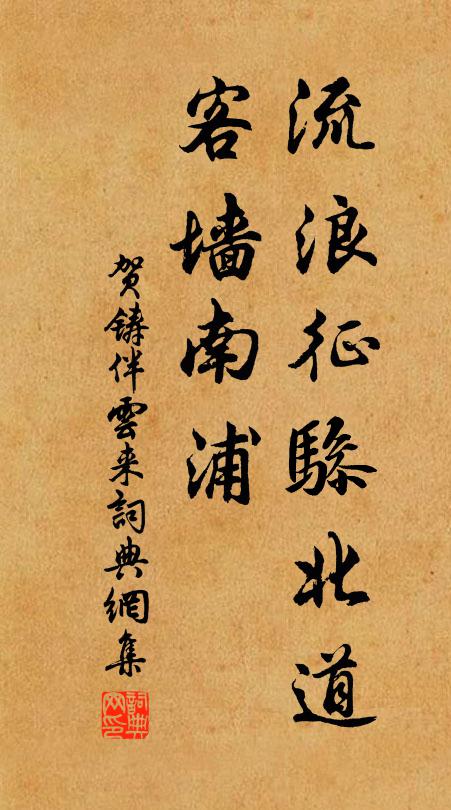 流浪征驂北道
客墙南浦
贺鑄伴雲来詞典網集
詞典
网印